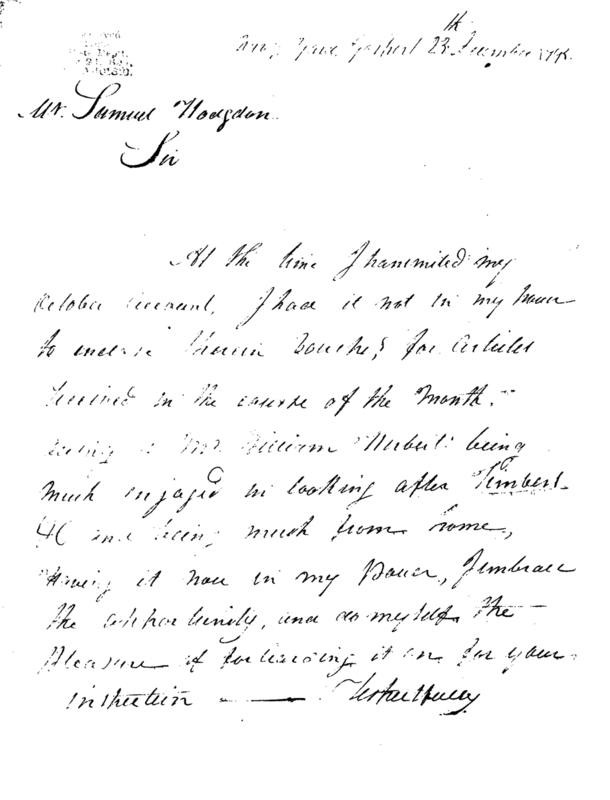 Navy Yard Gosport 23th December
Mr. Samuel Hodgdon
Sir
At the time I transmited my
October account, I had it not in my Power
to enclose therein Vouchers for Articles
Received in the course of the Month.
Mr. William being
much engaged in looking after Timber
&c and being much from home,
Having it now in my Power, I embrace
the opportunity, and do myself the
Pleasure of forwarding it on for your
inspection